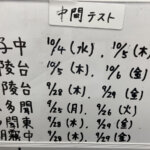 中間テスト
子中 10/4(水)、10/5(木)
陵台 10/5(木)、10/6(金)
陵台 9/28(木)、9/29(金)
多聞 9/25(月)、9/26(火)
中間東 9/28(木)、9/29(金)
明霧中 9/28(木)、9/29(金)